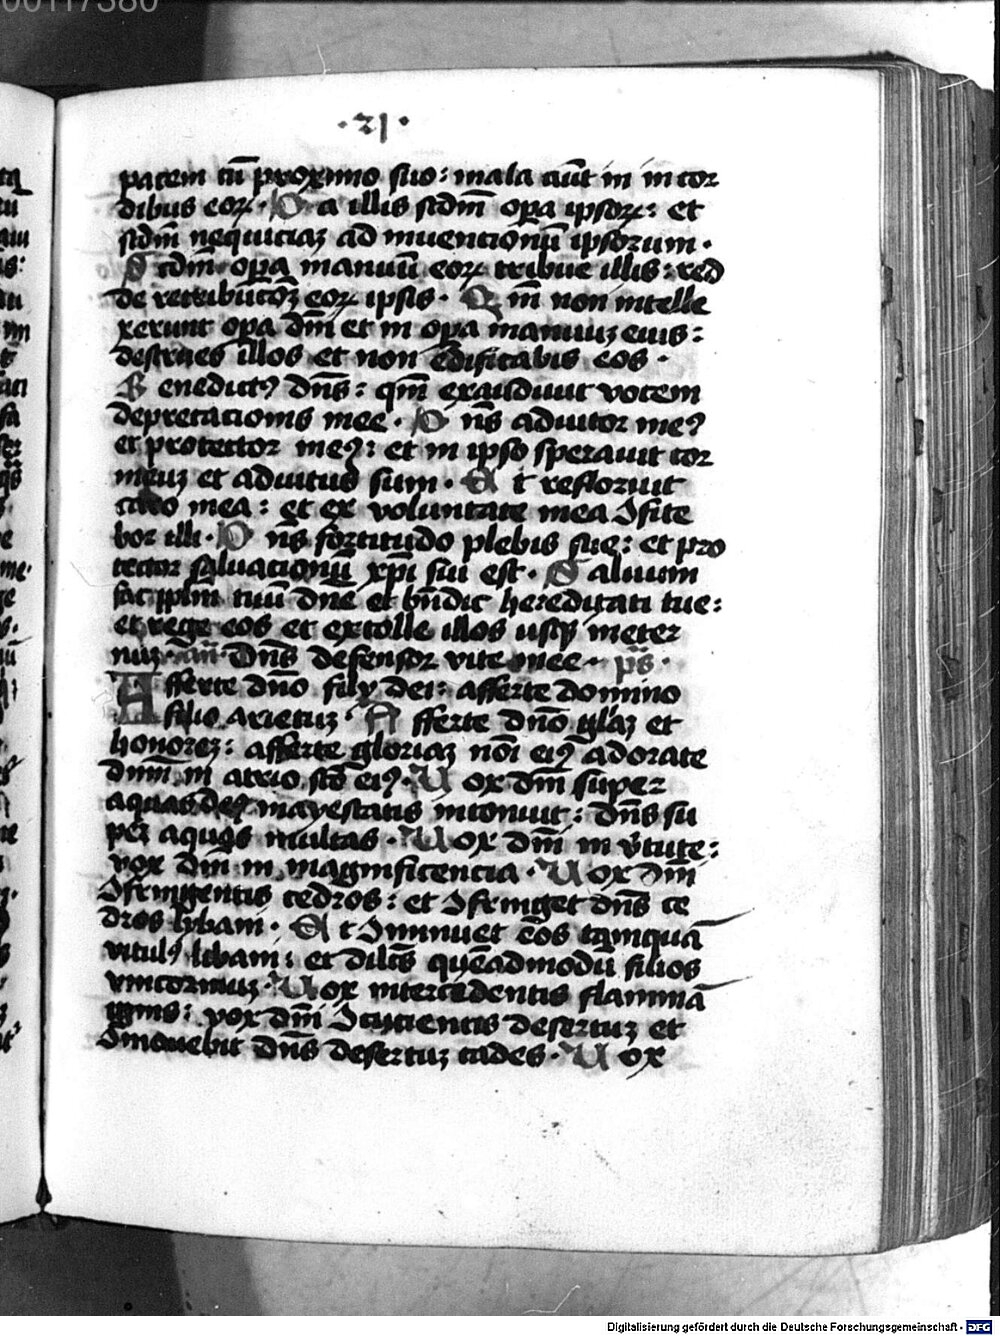 00117380
·21·
pacem cū proximo suo: mala aūt in in cor
dibus eoꝝ· D a illis scdm̄ oꝑa ipsoꝝ: et
scdm̄ nequiciaꝫ ad inuencionū ipsorum·
S cdm̄ oꝑa manuū eoꝝ tribue illis: red
de retribucōꝫ eoꝝ ipsis· Q m̄ non intelle
xerunt oꝑa dm̄ et in oꝑa manuuꝫ eius:
destrues illos et non edificabis eos·
B enedictꝰ dn̄s: qm̄ exaudiuit vocem
deprecacionis mee· D n̄s adiutor meꝰ
et protector meꝰ: et in ipso sperauit cor
meuꝫ et adiutus sum· E t refloruit
caro mea: et ex voluntate mea ɔfite
bor illi· D n̄s fortitudo plebis sue: et pro
tector saluacionū xp̄i sui est· S aluum
fac pplm̄ tuū dn̄e et bn̄dic hereditati tue:
et rege eos et extolle illos usqꝫ in eter
nuꝫ· an̄ Dn̄s defensor vite mee· ps̄·
A fferte dn̄o filÿ dei: afferte domino
filio arietuꝫ· A fferte dn̄o gl̄aꝫ et
honoreꝫ: afferte gloriaꝫ nōi eiꝰ adorate
dnm̄ in atrio scō eiꝰ· U ox dm̄ super
aquas deꝰ mayestatis intonuit: dn̄s su
per aquas multas· U ox dm̄ in v̄tute:
vox dm̄ in magnificencia· U ox dm̄
ɔfringentis cedros: et ɔfringet dn̄s ce
dros lybani· E t ɔminuet eōs tamquā
vitulꝰ libani: et dilc̄s quēadmodū filios
vnicornuuꝫ· U ox intercedentis flammā
ignis: vox dm̄ ɔcucientis desertuꝫ et
ɔmouebit dn̄s desertuꝫ cades· U ox
Digitalisierung gefördert durch die Deutsche Forschungsgemeinschaft - DFG